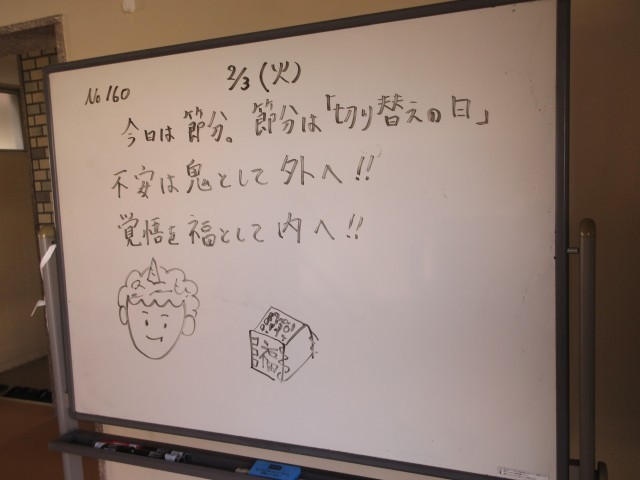 No 160
2/3 (火)
今日は 節分。 節分は「切り替えの日」
不安は鬼として 外へ!!
覚悟を 福として 内へ!!
福